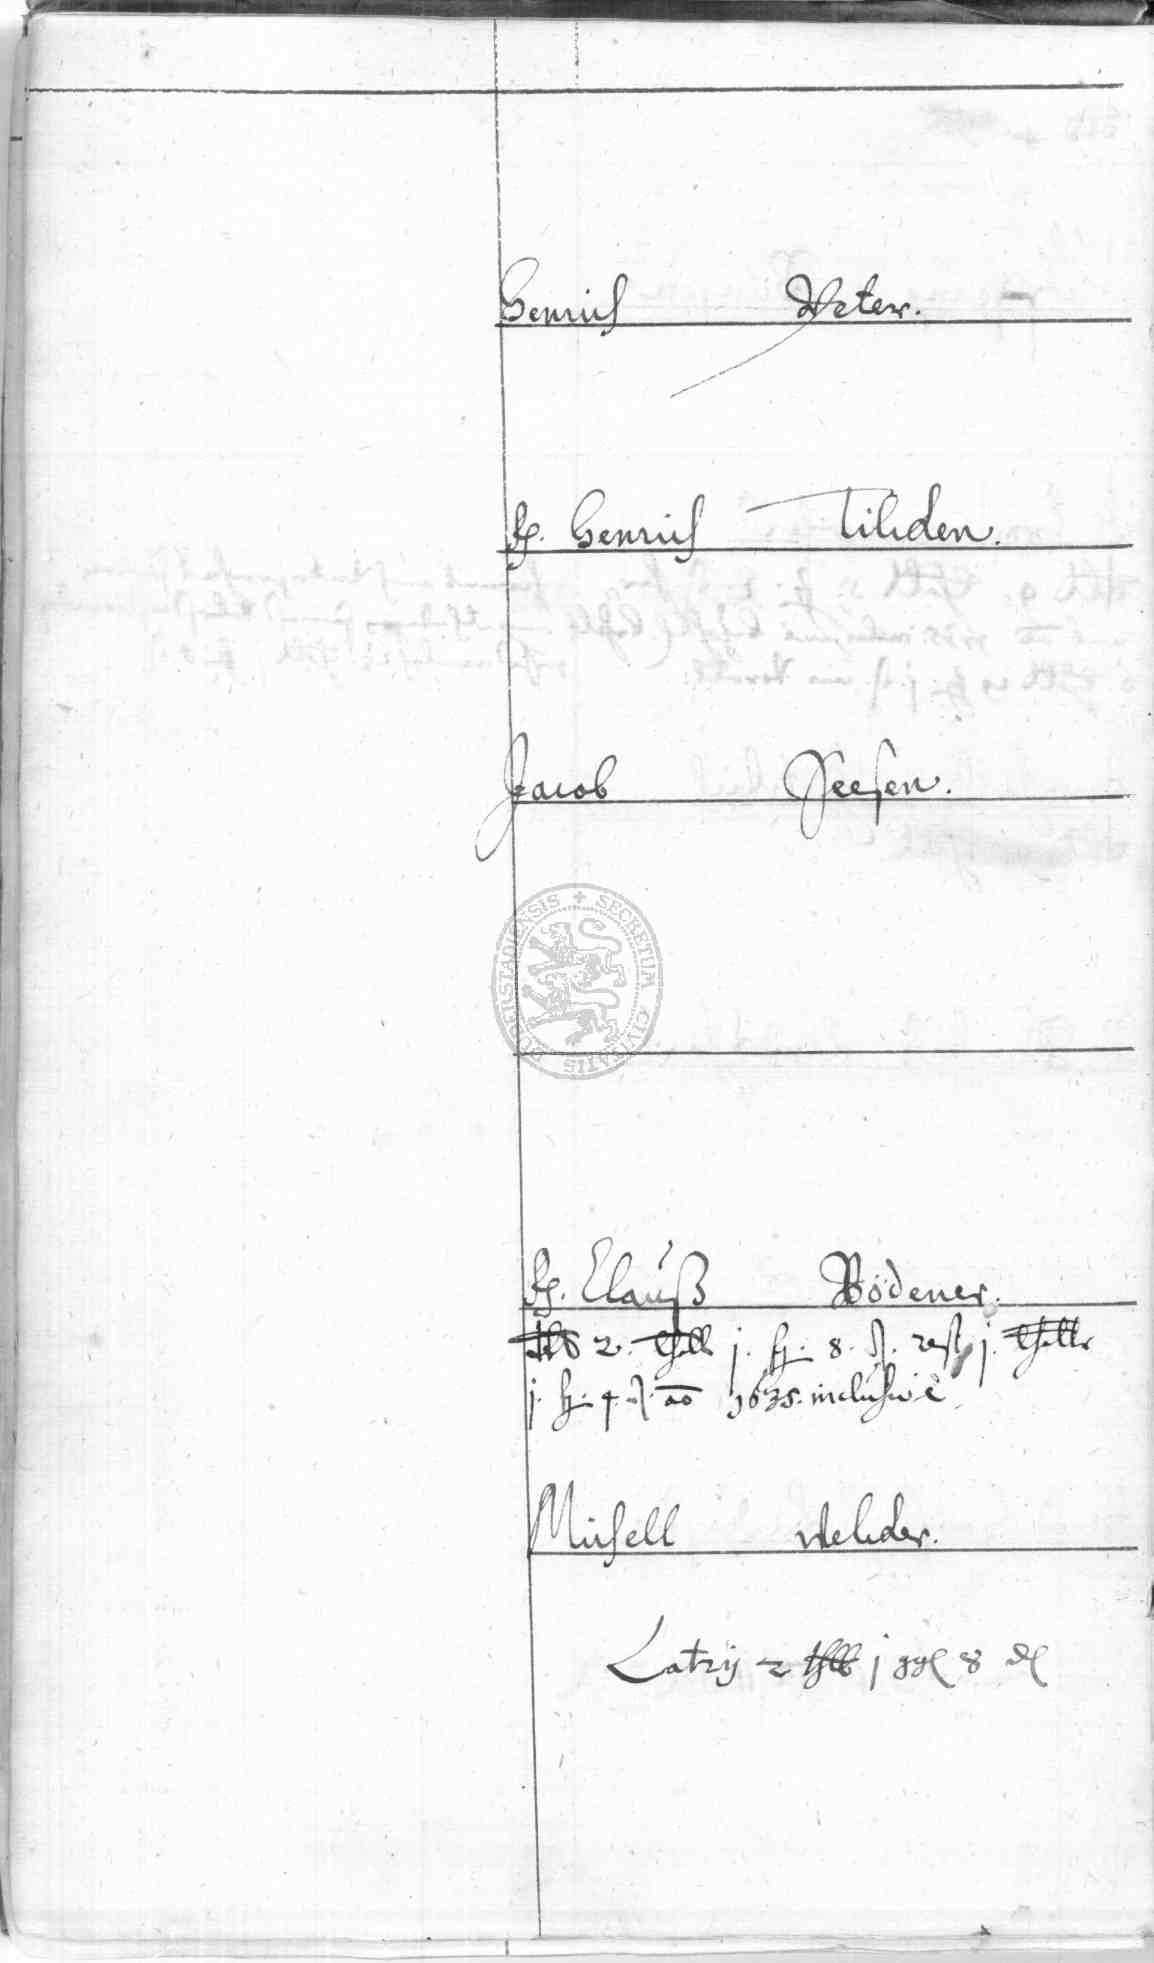 Henrich Peter.
H. Henrich Tileden.
Jacob Seesen.
SECRETUM CIVITATIS DUDERSTADIENSIS
H. Clauß Bödener.
2 thlr j. ß. 8. ₰. rest j. thllr
j ß. 4 ₰. ao 1635. inclusive
Michell Weleder.
Lat 2 thlr j 8 ₰